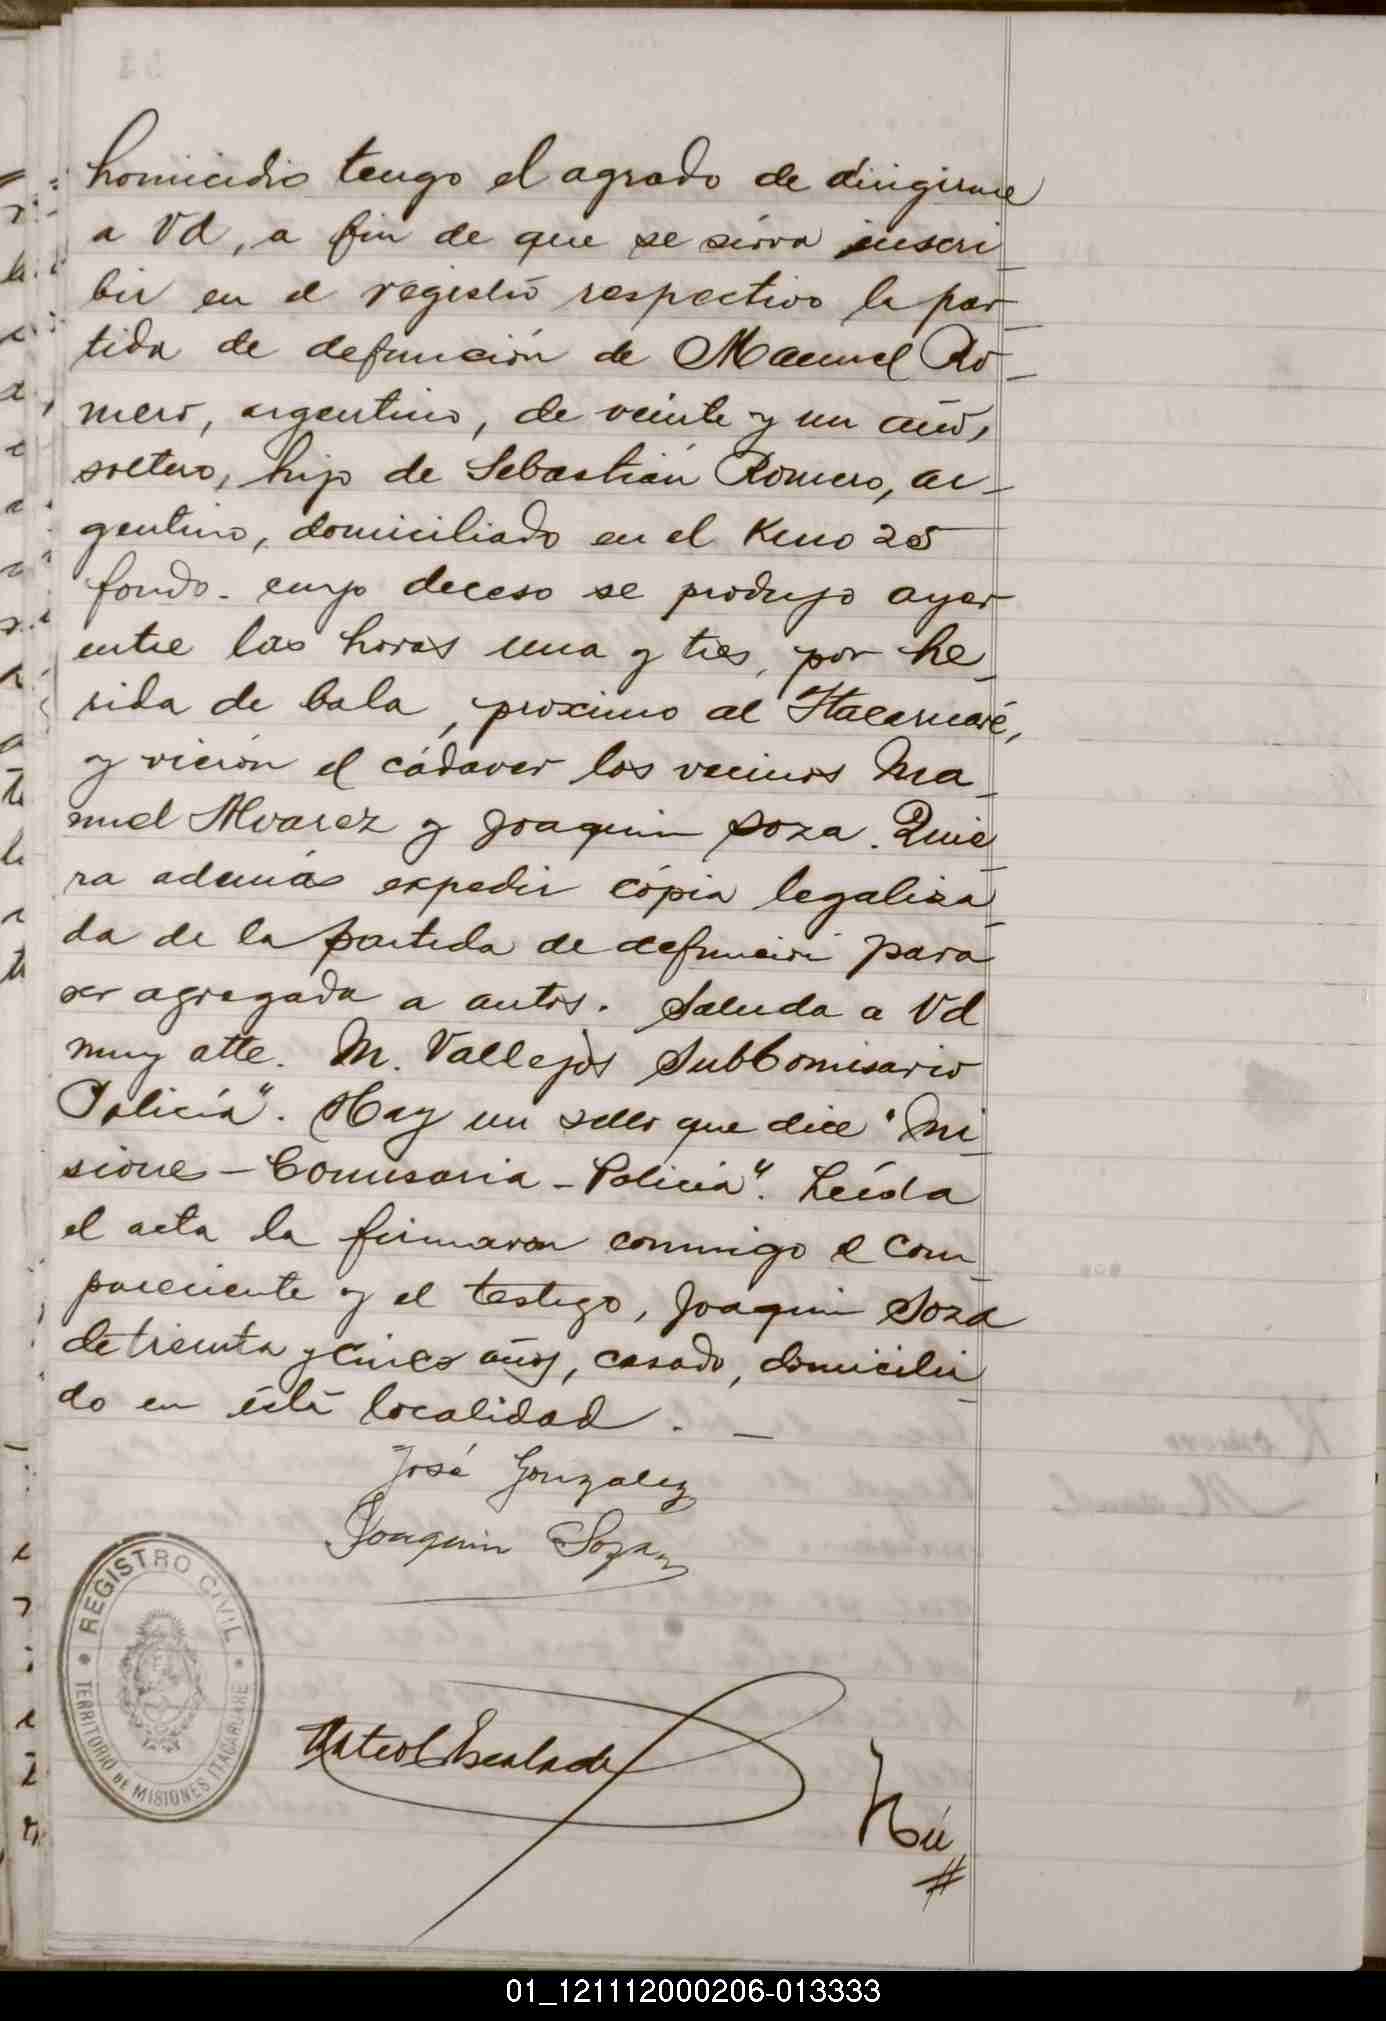 homicidio tengo el agrado de dirigirme
a Vd, a fin de que se sirva inscri
bir en el registro respectivo la par
tida de defunción de Manuel Ro
mero, argentino, de veinte y un años,
soltero, hijo de Sebastián Romero, ar
gentino, domiciliado en el Kmo 25
fondo. cuyo deceso se produjo ayer
entre las horas una y tres, por he
rida de bala, proximo al Itacaruaré,
y vieron el cádaver los vecinos Ma
nuel Alvarez y Joaquin Soza. Quie
ra además expedir cópia legaliza
da de la partida de defunción para
ser agregada a autos. Saluda a Vd
muy atte. M. Vallejos SubComisario
Policía". Hay un sello que dice "Mi
siones - Comisaria - Policia". Leída
el acta la firmaron conmigo el com
pareciente y el testigo, Joaquin Soza
de treinta y cinco años, casado, domicilia
do en ésta localidad. -
José Gonzalez
Joaquin Soza
REGISTRO CIVIL
TERRITORIO DE MISIONES ITACARUARE
01_121112000206-013333